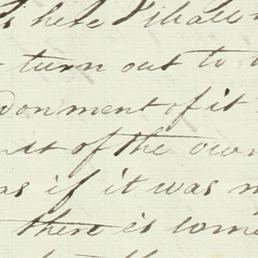 s here I shall
turn out to
donment of it
of the own
as if it was m
there is some